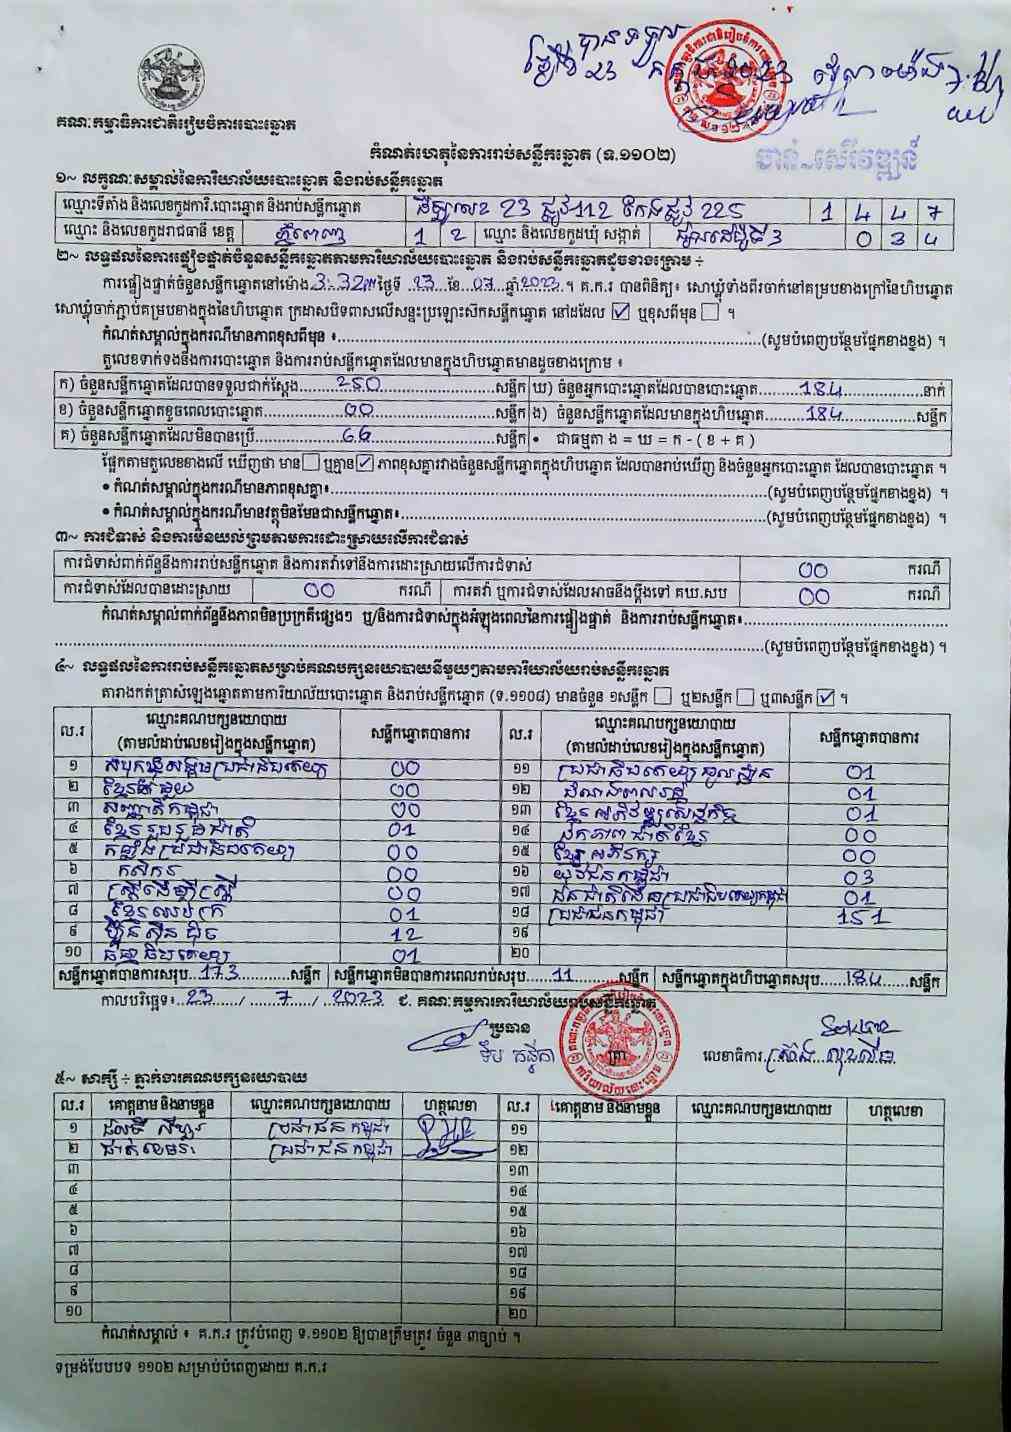 បានទទួល
ថ្ងៃទី 23
គណៈកម្មាធិការជាតិរៀបចំការបោះឆ្នោត
កំណត់ហេតុនៃការរាប់សន្លឹកឆ្នោត (ទ.១១០២)
១~ លក្ខណៈសម្គាល់នៃការិយាល័យបោះឆ្នោត និងរាប់សន្លឹកឆ្នោត
ឈ្មោះទីតាំង និងលេខកូដការិ.បោះឆ្នោត និងរាប់សន្លឹកឆ្នោត 23 ផ្លូវ 112 កែងផ្លូវ 225 1 4 4 7
ឈ្មោះ និងលេខកូដរាជធានី ខេត្ត ភ្នំពេញ 1 2 ឈ្មោះ និងលេខកូដឃុំ សង្កាត់ ផ្សារដេប៉ូទី 3 0 3 4
២~ លទ្ធផលនៃការផ្ទៀងផ្ទាត់ចំនួនសន្លឹកឆ្នោតតាមការិយាល័យបោះឆ្នោត និងរាប់សន្លឹកឆ្នោតដូចខាងក្រោម ÷
ការផ្ទៀងផ្ទាត់ចំនួនសន្លឹកឆ្នោតនៅម៉ោង 3:32 ថ្ងៃទី 23 ខែ 07 ឆ្នាំ 2023 ។ គ.ក.រ បានពិនិត្យ៖ សោឃ្លុំទាំងពីរចាក់នៅគម្របខាងក្រៅនៃហិបឆ្នោត
សោឃ្លុំចាក់ភ្ជាប់គម្របខាងក្នុងនៃហិបឆ្នោត ក្រដាសបិទពាសលើសន្ទះប្រឡោះស៊កសន្លឹកឆ្នោត នៅដដែល ☑ ឬខុសពីមុន ☐ ។
កំណត់សម្គាល់ក្នុងករណីមានភាពខុសពីមុន ៖ (សូមបំពេញបន្ថែមផ្នែកខាងខ្នង) ។
តួលេខទាក់ទងនឹងការបោះឆ្នោត និងការរាប់សន្លឹកឆ្នោតដែលមានក្នុងហិបឆ្នោតមានដូចខាងក្រោម ៖
ក) ចំនួនសន្លឹកឆ្នោតដែលបានទទួលជាក់ស្តែង 250 សន្លឹក ឃ) ចំនួនអ្នកបោះឆ្នោតដែលបានបោះឆ្នោត 184 នាក់
ខ) ចំនួនសន្លឹកឆ្នោតខូចពេលបោះឆ្នោត 00 សន្លឹក ង) ចំនួនសន្លឹកឆ្នោតដែលមានក្នុងហិបឆ្នោត 184 សន្លឹក
គ) ចំនួនសន្លឹកឆ្នោតដែលមិនបានប្រើ 66 សន្លឹក • ជាធម្មតា ង = ឃ = ក - ( ខ + គ )
ផ្អែកតាមតួលេខខាងលើ ឃើញថា មាន ☐ ឬគ្មាន ☑ ភាពខុសគ្នារវាងចំនួនសន្លឹកឆ្នោតក្នុងហិបឆ្នោត ដែលបានរាប់ឃើញ និងចំនួនអ្នកបោះឆ្នោត ដែលបានបោះឆ្នោត ។
• កំណត់សម្គាល់ក្នុងករណីមានភាពខុសគ្នា៖ (សូមបំពេញបន្ថែមផ្នែកខាងខ្នង) ។
• កំណត់សម្គាល់ក្នុងករណីមានវត្ថុមិនមែនជាសន្លឹកឆ្នោត៖ (សូមបំពេញបន្ថែមផ្នែកខាងខ្នង) ។
៣~ ការជំទាស់ និងការមិនយល់ព្រមតាមការដោះស្រាយលើការជំទាស់
ការជំទាស់ពាក់ព័ន្ធនឹងការរាប់សន្លឹកឆ្នោត និងការតវ៉ាទៅនឹងការដោះស្រាយលើការជំទាស់ 00 ករណី
ការជំទាស់ដែលបានដោះស្រាយ 00 ករណី ការតវ៉ា ឬការជំទាស់ដែលអាចនឹងប្តឹងទៅ គឃ.សប 00 ករណី
កំណត់សម្គាល់ពាក់ព័ន្ធនឹងភាពមិនប្រក្រតីផ្សេងៗ ឬ/និងការជំទាស់ក្នុងអំឡុងពេលនៃការផ្ទៀងផ្ទាត់ និងការរាប់សន្លឹកឆ្នោត៖
(សូមបំពេញបន្ថែមផ្នែកខាងខ្នង) ។
៤~ លទ្ធផលនៃការរាប់សន្លឹកឆ្នោតសម្រាប់គណបក្សនយោបាយនីមួយៗតាមការិយាល័យរាប់សន្លឹកឆ្នោត
តារាងកត់ត្រាសំឡេងឆ្នោតតាមការិយាល័យបោះឆ្នោត និងរាប់សន្លឹកឆ្នោត (ទ.១១០៨) មានចំនួន ១សន្លឹក ☐ ឬ២សន្លឹក ☐ ឬ៣សន្លឹក ☑ ។
ល.រ ឈ្មោះគណបក្សនយោបាយ (តាមលំដាប់លេខរៀងក្នុងសន្លឹកឆ្នោត) សន្លឹកឆ្នោតបានការ ល.រ ឈ្មោះគណបក្សនយោបាយ (តាមលំដាប់លេខរៀងក្នុងសន្លឹកឆ្នោត) សន្លឹកឆ្នោតបានការ
១ សំបុកឃ្មុំសង្គមប្រជាធិបតេយ្យ 00 ១១ ប្រជាធិបតេយ្យមូលដ្ឋាន 01
២ ខ្មែរតែមួយ 00 ១២ ដំណាងពលរដ្ឋ 01
៣ សញ្ជាតិកម្ពុជា 00 ១៣ ខ្មែរអភិវឌ្ឍសេដ្ឋកិច្ច 01
៤ ខ្មែររួបរួមជាតិ 01 ១៤ ឯកភាពជាតិខ្មែរ 00
៥ កម្លាំងប្រជាធិបតេយ្យ 00 ១៥ ខ្មែរអភិរក្ស 00
៦ កសិករ 00 ១៦ យុវជនកម្ពុជា 03
៧ ស្ត្រីដើម្បីស្ត្រី 00 ១៧ ជនជាតិដើមប្រជាធិបតេយ្យកម្ពុជា 01
៨ ខ្មែរឈប់ក្រ 01 ១៨ ប្រជាជនកម្ពុជា 151
៩ ហ៊្វុនស៊ិនប៉ិច 12 ១៩
១០ ធម្មាធិបតេយ្យ 01 ២០
សន្លឹកឆ្នោតបានការសរុប 173 សន្លឹក សន្លឹកឆ្នោតមិនបានការពេលរាប់សរុប 11 សន្លឹក សន្លឹកឆ្នោតក្នុងហិបឆ្នោតសរុប 184 សន្លឹក
កាលបរិច្ឆេទ៖ 23 / 7 / 2023 ជ. គណៈកម្មការការិយាល័យរាប់សន្លឹកឆ្នោត
ប្រធាន
ត្រា
លេខាធិការ
៥~ សាក្សី ÷ ភ្នាក់ងារគណបក្សនយោបាយ
ល.រ គោត្តនាម និងនាមខ្លួន ឈ្មោះគណបក្សនយោបាយ ហត្ថលេខា ល.រ គោត្តនាម និងនាមខ្លួន ឈ្មោះគណបក្សនយោបាយ ហត្ថលេខា
១ ប្រជាជនកម្ពុជា ១១
២ ប្រជាជនកម្ពុជា ១២
៣ ១៣
៤ ១៤
៥ ១៥
៦ ១៦
៧ ១៧
៨ ១៨
៩ ១៩
១០ ២០
កំណត់សម្គាល់ ៖ គ.ក.រ ត្រូវបំពេញ ទ.១១០២ ឱ្យបានត្រឹមត្រូវ ចំនួន ៣ច្បាប់ ។
ទម្រង់បែបបទ ១១០២ សម្រាប់បំពេញដោយ គ.ក.រ